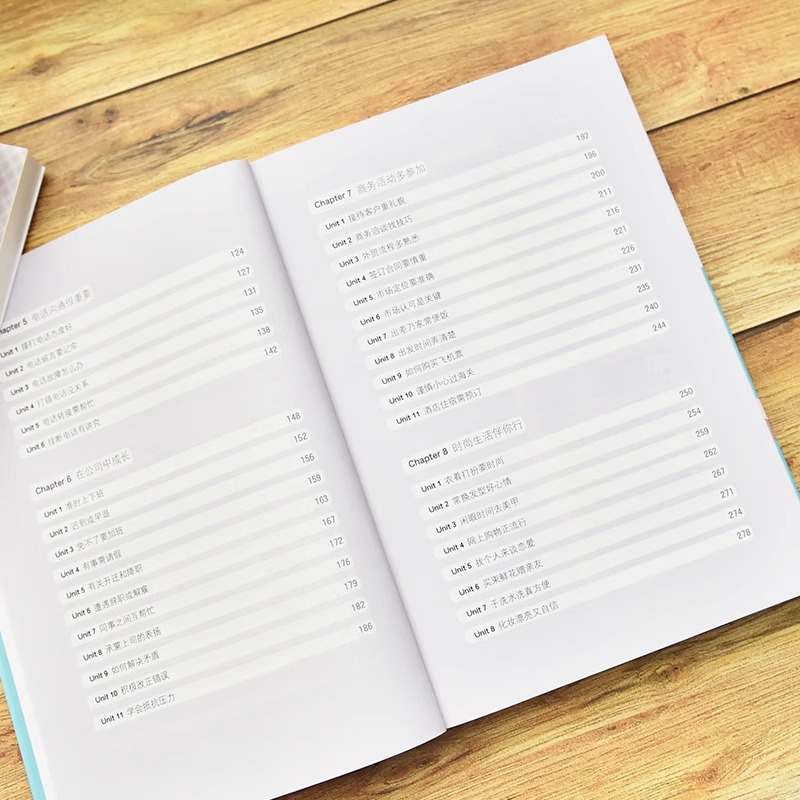 apter 5 电话沟通很重要
Unit 1 接打电话态度好 124
Unit 2 电话留言要记牢 127
Unit 3 电话故障怎么办 131
Unit 4 打错电话没关系 135
Unit 5 电话转接需帮忙 138
Unit 6 挂断电话有讲究 142
Chapter 6 在公司中成长
Unit 1 准时上下班 148
Unit 2 迟到或早退 152
Unit 3 免不了要加班 156
Unit 4 有事需请假 159
Unit 5 有关升迁和降职 163
Unit 6 遭遇辞职或解雇 167
Unit 7 同事之间互帮忙 172
Unit 8 承蒙上司的表扬 176
Unit 9 如何解决矛盾 179
Unit 10 积极改正错误 182
Unit 11 学会抵抗压力 186
Chapter 7 商务活动多参加
Unit 1 接待客户重礼貌 192
Unit 2 商务洽谈找技巧 196
Unit 3 外贸流程多熟悉 200
Unit 4 签订合同要慎重 211
Unit 5 市场定位要准确 216
Unit 6 市场认可是关键 221
Unit 7 出差乃家常便饭 226
Unit 8 出发时间弄清楚 231
Unit 9 如何购买飞机票 235
Unit 10 谨慎小心过海关 240
Unit 11 酒店住宿需预订 244
Chapter 8 时尚生活伴你行
Unit 1 衣着打扮要时尚 250
Unit 2 常换发型好心情 254
Unit 3 闲暇时间去美甲 259
Unit 4 网上购物正流行 262
Unit 5 找个人来谈恋爱 267
Unit 6 买来鲜花赠亲友 271
Unit 7 干洗水洗真方便 274
Unit 8 化妆漂亮又自信 278